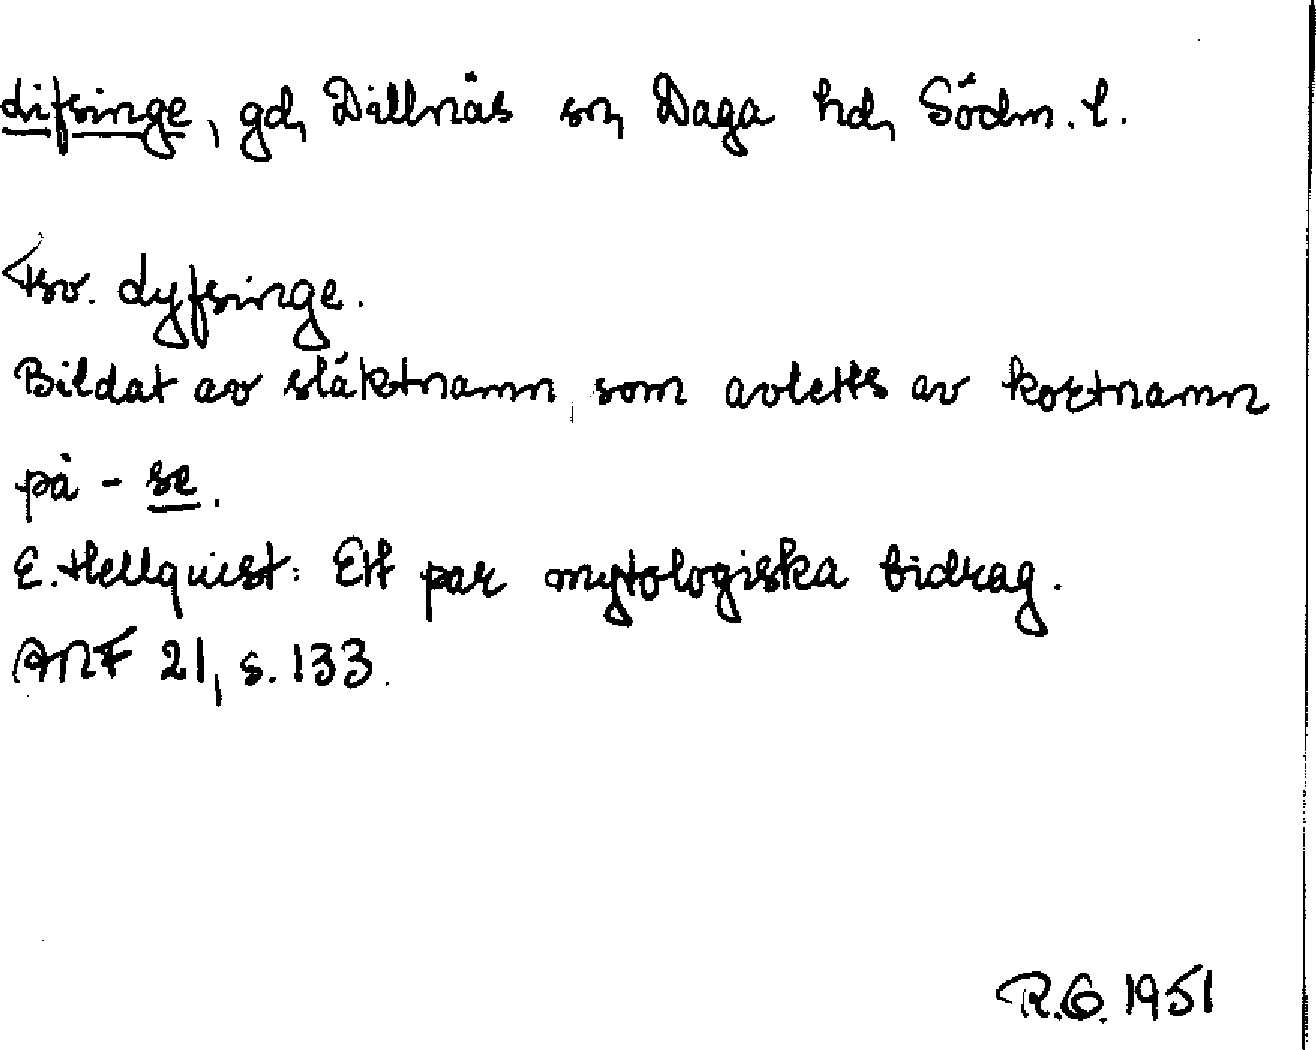 Lifsinge, gd, Dillnäs sn, Daga hd, Södm. l.
Fsv. Lyfsinge.
Bildat av släktnamn, som avletts av kortnamn
på - se.
E. Hellquist: Ett par mytologiska bidrag.
ANF 21, s. 133.
R.G. 1951